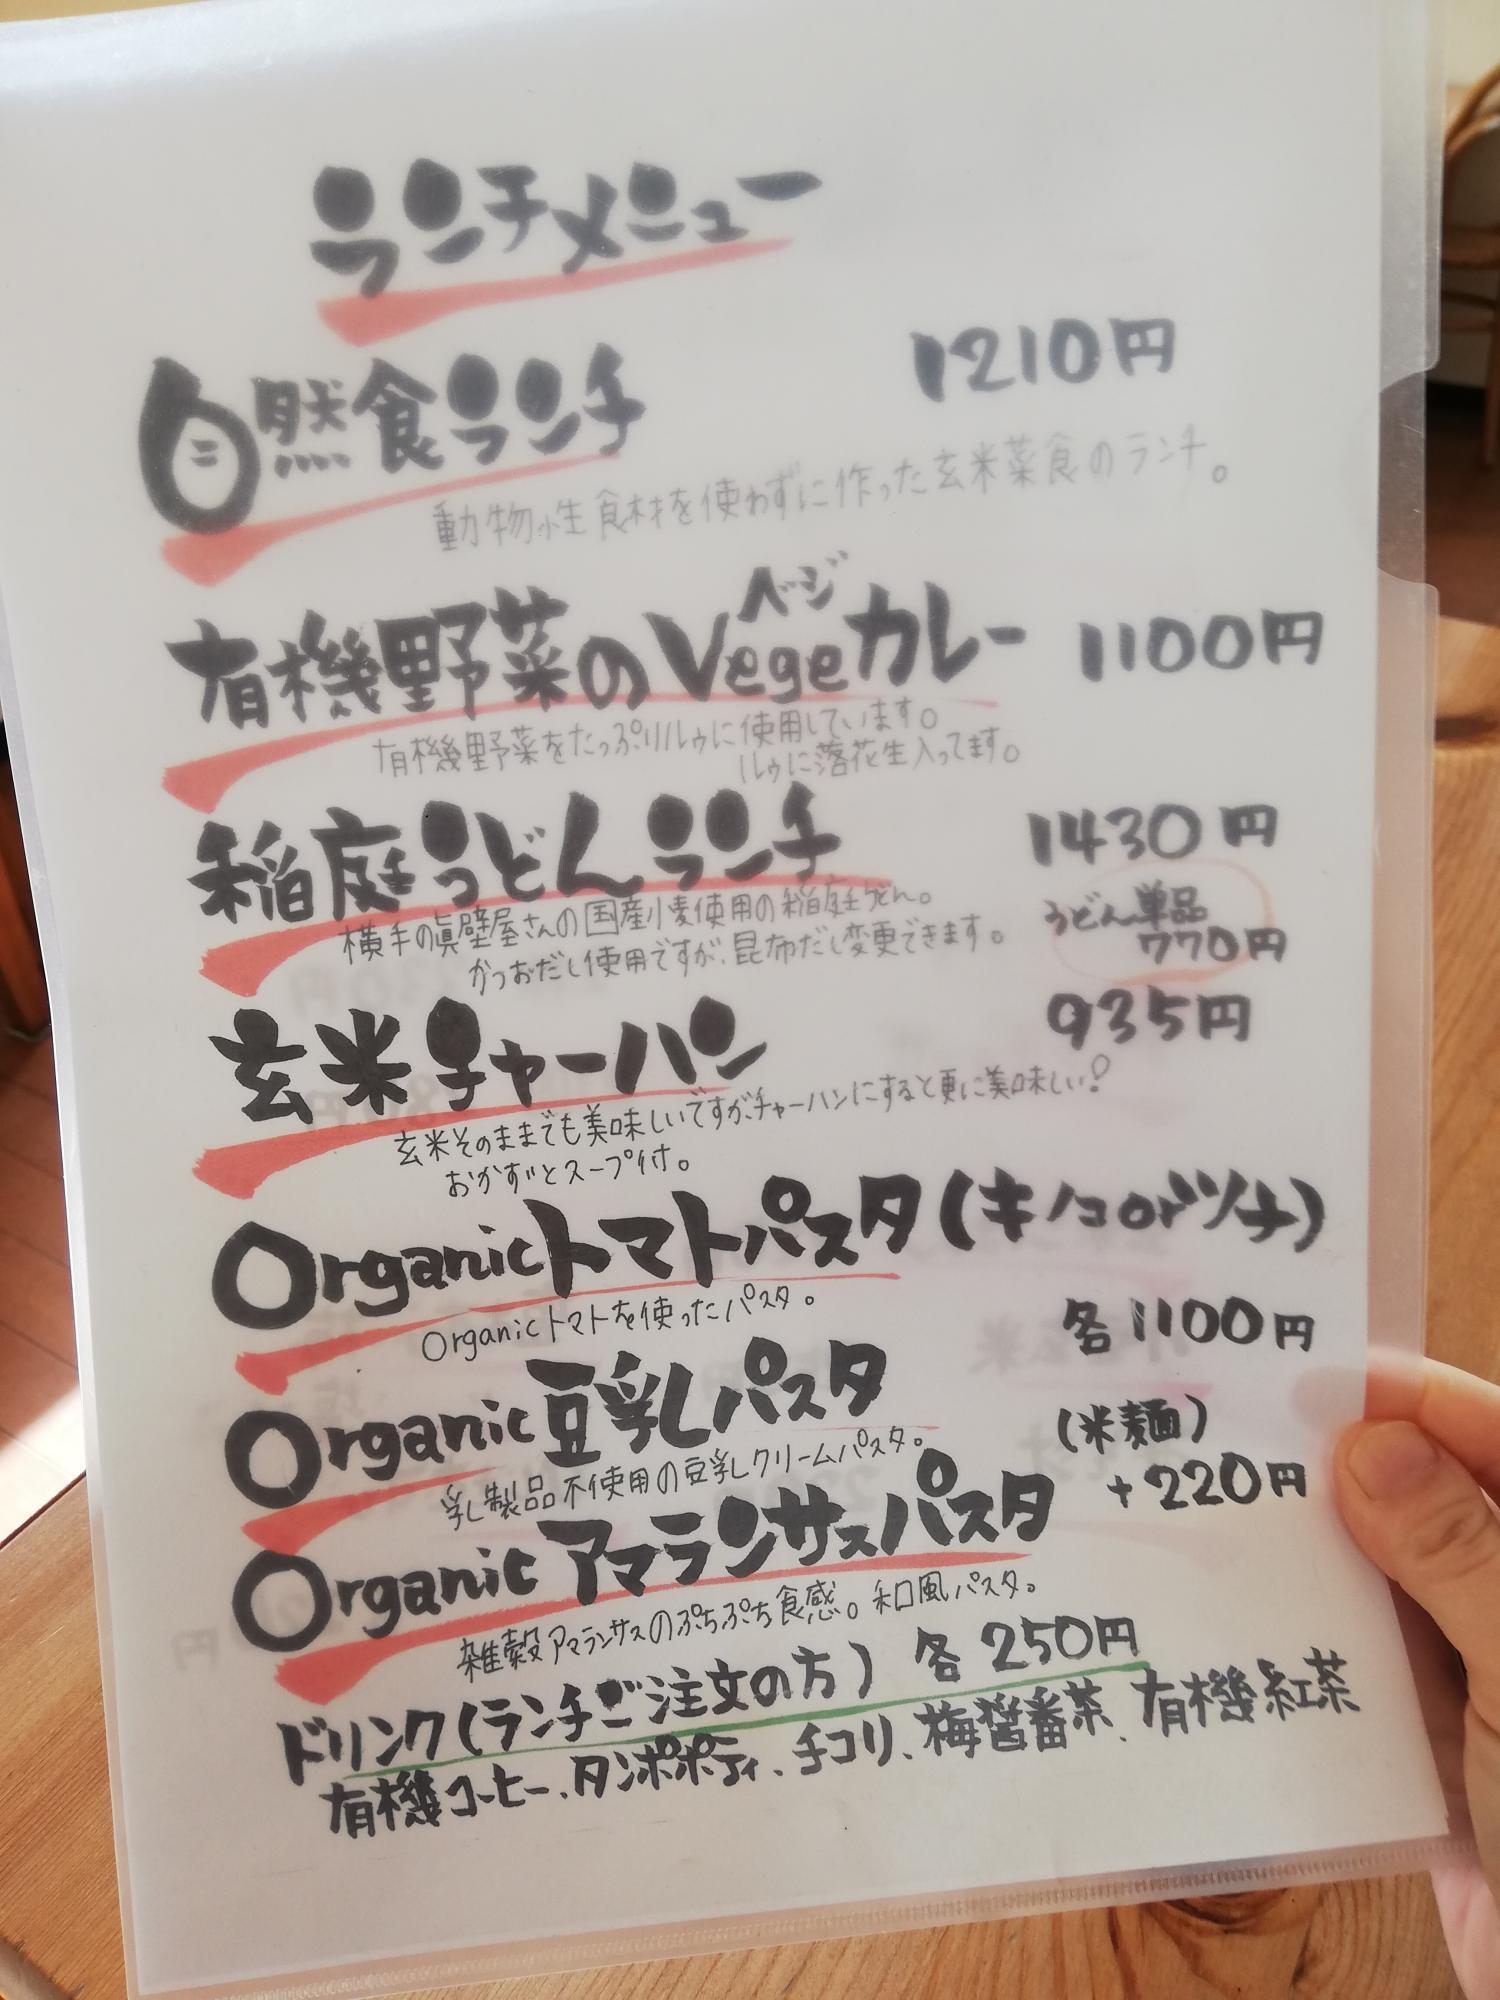 ランチメニュー
自然食ランチ 1210円
動物性食材を使わずに作った玄米菜食のランチ。
ベジ
有機野菜のVegeカレー 1100円
有機野菜をたっぷりルゥに使用しています。
ルゥに落花生入ってます。
稲庭うどんランチ 1430円
横手の眞壁屋さんの国産小麦使用の稲庭うどん。
かつおだし使用ですが、昆布だし変更できます。
うどん単品
770円
玄米チャーハン 935円
玄米そのままでも美味しいですが、チャーハンにすると更に美味しい!
おかずとスープ付。
Organicトマトパスタ(キノコorツナ)
Organicトマトを使ったパスタ。
各1100円
Organic豆乳パスタ
乳製品不使用の豆乳クリームパスタ。
(米麺)
+220円
Organicアマランサスパスタ
雑穀アマランサスのぷちぷち食感。和風パスタ。
ドリンク(ランチご注文の方) 各250円
有機コーヒー、タンポポティ、チコリ、梅醤番茶、有機紅茶